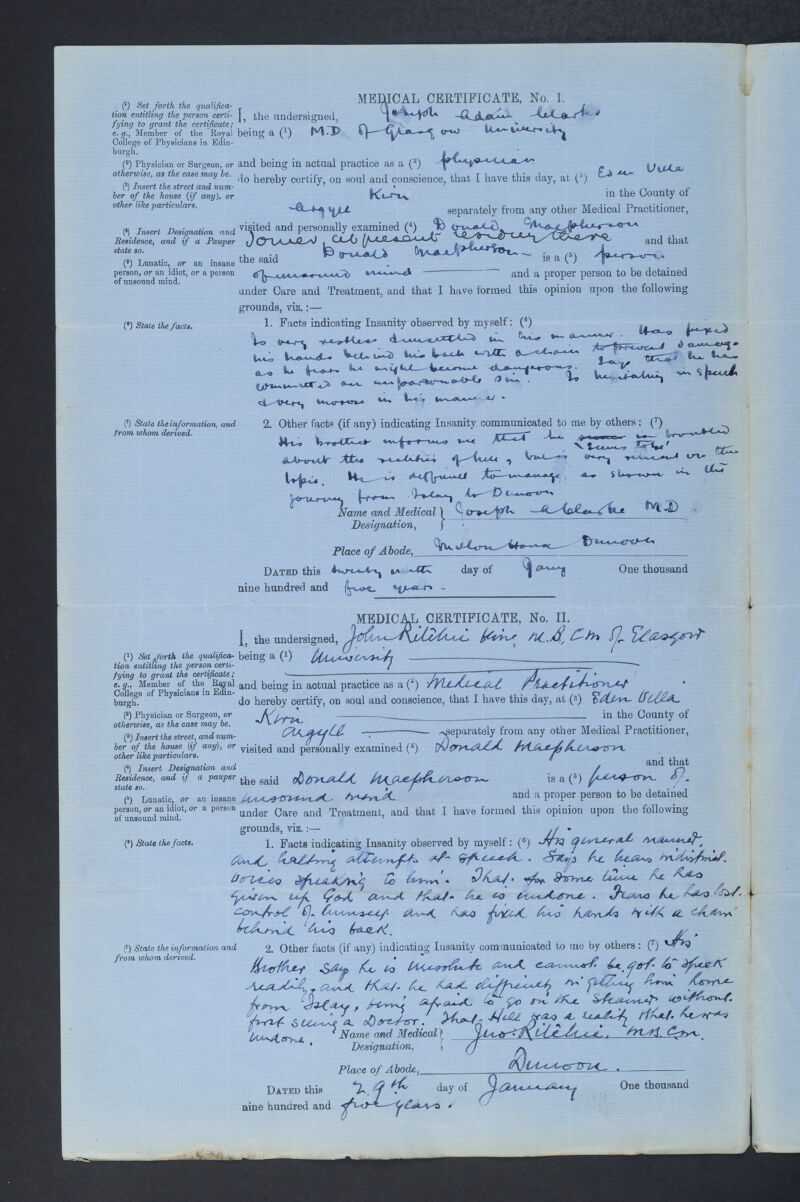 MEDICAL CERTIFICATE, No. I.
(¹) Set forth the qualifica-
tion entitling the person certi-
fying to grant the certificate;
e.g., Member of the Royal
College of Physicians in Edin-
burgh.
I, the undersigned, Joseph Adam Clarke
being a (¹) M.D of Glasgow University
(²) Physician or Surgeon, or
otherwise, as the case may be.
and being in actual practice as a (²) physician
(³) Insert the street and num-
ber of the house (if any), or
other like particulars.
do hereby certify, on soul and conscience, that I have this day, at (³) Eden Villa
Kirn in the County of
Argyll separately from any other Medical Practitioner,
(⁴) Insert Designation and
Residence, and if a Pauper
state so.
visited and personally examined (⁴) Donald Macpherson
Joiner, at present residing there and that
(⁵) Lunatic, or an insane
person, or an idiot, or a person
of unsound mind.
the said Donald Macpherson is a (⁵) person
of unsound mind and a proper person to be detained
under Care and Treatment, and that I have formed this opinion upon the following
grounds, viz.:—
(⁶) State the facts.
1. Facts indicating Insanity observed by myself: (⁶)
Is very restless & unsettled in his manner. Has fixed
his hands behind his back with a chain to prevent damage
as he fears he might become dangerous. Says that he has
committed an unpardonable sin. Is hesitating in speech
& very morose in his manner.
(⁷) State the information, and
from whom derived.
2. Other facts (if any) indicating Insanity communicated to me by others: (⁷)
His brother informs me that he seems to be troubled
about the realities of hell, but is very reticent on this
topic. He is difficult to manage, as shown in the
journey from Islay to Dunoon
Name and Medical Designation, Joseph A Clarke M.D.
Place of Abode, Dunoon
DATED this twenty ninth day of Jany One thousand
nine hundred and five years.
MEDICAL CERTIFICATE, No. II.
(¹) Set forth the qualifica-
tion entitling the person certi-
fying to grant the certificate;
e.g., Member of the Royal
College of Physicians in Edin-
burgh.
I, the undersigned, John Ritchie King M.B, C.M of Glasgow
being a (¹) University
and being in actual practice as a (²) Medical Practitioner
(²) Physician or Surgeon, or
otherwise, as the case may be.
do hereby certify, on soul and conscience, that I have this day, at (³) Eden Villa
Kirn in the County of
(³) Insert the street, and num-
ber of the house (if any), or
other like particulars.
Argyll separately from any other Medical Practitioner,
visited and personally examined (⁴) Donald Macpherson
(⁴) Insert Designation and
Residence, and if a pauper
state so.
and that
the said Donald Macpherson is a (⁵) person of
(⁵) Lunatic, or an insane
person, or an idiot, or a person
of unsound mind.
unsound mind and a proper person to be detained
under Care and Treatment, and that I have formed this opinion upon the following
grounds, viz.:—
(⁶) State the facts.
1. Facts indicating Insanity observed by myself: (⁶) His general manner,
and halting attempts at speech. Says he hears indistinct
voices speaking to him. That for some time he has
given up God and that he is undone. Fears he has lost
control of himself and has fixed his hands with a chain
behind his back.
(⁷) State the information and
from whom derived.
2. Other facts (if any) indicating Insanity communicated to me by others: (⁷) His
Brother says he is irresolute and cannot be got to speak
readily, and that he had difficulty in getting him home
from Islay, being afraid to go on the steamer without
first seeing a Doctor. That Hell was a reality that he was
undone.
Name and Medical Designation, Jno: Ritchie. M.B. C.M.
Place of Abode, Dunoon.
DATED this 29th day of January One thousand
nine hundred and five years.